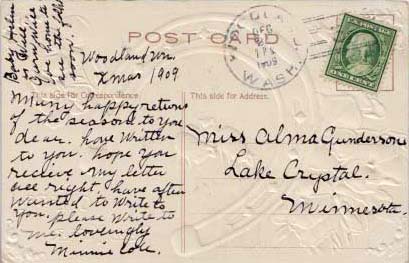 POST CARD
WASH.
DEC
1909
ONE CENT
Woodland Wn.
Xmas 1909
This side for Correspondence
This side for Address.
Many happy returns
of the season to you
dear. have written
to you. hope you
recieve my letter
all right. have often
wanted to write to
you. please write to
me. lovingly
Minnie Cole.
Miss Alma Gunderson
Lake Crystal.
Minnesota.
Baby Helen